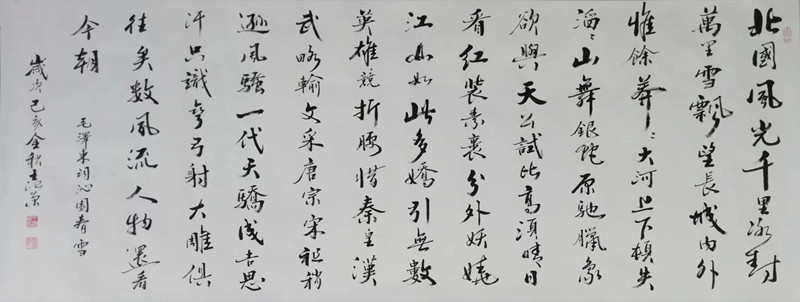 北國風光千里冰封
萬里雪飄望長城內外
惟餘莽〻大河上下頓失
滔〻山舞銀蛇原馳臘象
欲與天公試比高須晴日
看紅裝素裹分外妖嬈
江山如此多嬌引無數
英雄競折腰惜秦皇漢
武略輸文采唐宗宋祖稍
遜風騷一代天驕成吉思
汗只識彎弓射大雕俱
往矣數風流人物還看
今朝
毛澤東詞沁園春雪
歲次己亥金秋